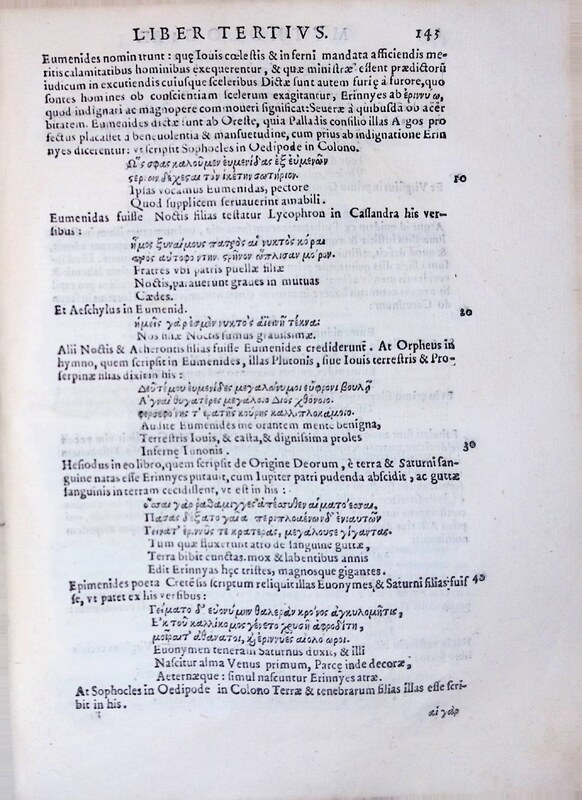 LIBER TERTIVS. 145
Eumenides nominātur: quę Iouis cœlestis & inferni mandata afficiendis me-
ritis calamitatibus hominibus exequerentur, & quæ ministræ essent prædictorū
iudicum in excutiendis cuiusque sceleribus Dictæ sunt autem furię a furore, quo
sontes homines ob conscientiam scelerum exagitantur, Erinnyes ab ἐριννύω,
quod indignari ac magnopere commoueri significat: Seueræ à quibusdā ob acer
bitatem. Eumenides dictæ sunt ab Oreste, quia Palladis consilio illas Argos pro
fectus placasset a beneuolentia & mansuetudine, cum prius ab indignatione Erin
nyes dicerentur: vt scripsit Sophocles in Oedipode in Colono.
Ὥς σφας καλοῦμεν ευμενίδας ἐξ ευμενῶν
στέρνων δέχεσθαι τὸν ἱκέτην σωτήριον. 10
Ipsas vocamus Eumenidas, pectore
Quod supplicem seruauerint amabili.
Eumenidas fuisse Noctis filias testatur Lycophron in Cassandra his ver-
sibus:
Fratres vbi patris puellæ filiæ
Noctis, parauerunt graues in mutuas
Cædes.
Et Aeschylus in Eumenid. 20
ἡμεῖς γάρ ἐσμὲν νυκτὸς αἰανῆ τέκνα:
Nos filiæ Noctis sumus grauissimæ.
Alii Noctis & Acherontis filias fuisse Eumenides crediderunt. At Orpheus in
hymno, quem scripsit in Eumenides, illas Plutonis, siue Iouis terrestris & Pro-
serpinæ filias dixit in his:
μεγαλώνυμοι εὔφρονι βουλῇ
Ἁγναὶ θυγατέρες μεγάλοιο Διὸς χθονίοιο.
φερσεφόνης τ' ἐρατῆς κούρης καλλιπλοκάμοιο.
Audite Eumenides me orantem mente benigna,
Terrestris Iouis, & casta, & dignissima proles
Infernę Iunonis. 30
Hesiodus in eo libro, quem scripsit de Origine Deorum, è terra & Saturni san-
guine natas esse Erinnyes putauit, cum Iupiter patri pudenda abscidit, ac guttæ
sanguinis in terram cecidissent, vt est in his:
ὅσσαι γὰρ ῥαθάμιγγες ἀπέσσυθεν αἱματόεσσαι,
Πάσας δέξατο γαῖα περιπλομένων δ' ἐνιαυτῶν
Γείνατ' ἐρινννῦς τε κρατεράς, μεγάλους τε γίγαντας.
Tum quæ fluxerunt atro de sanguine guttæ,
Terra bibit cunctas. mox & labentibus annis
Edit Erinnyas hęc tristes, magnosque gigantes.
Epimenides poeta Cretensis scriptum reliquit illas Euonymes, & Saturni filias fuis 40
se, vt patet ex his versibus:
Γείματο δ' εὐονύμην θαλερὰν κρόνος ἀγκυλομήτις,
Ἐκ τοῦ καλλίκομος γένετο χρυσῆ ἀφροδίτη,
μοῖραι τ' ἀθάνατοι, καὶ ἐριννύες αἰολόδωροι.
Euonymen teneram Saturnus duxit, & illi
Nascitur alma Venus primum, Parcę inde decoræ,
Aeternæque: simul nascuntur Erinnyes atræ.
At Sophocles in Oedipode in Colono Terræ & tenebrarum filias illas esse scri-
bit in his.
αἱ γὰρ